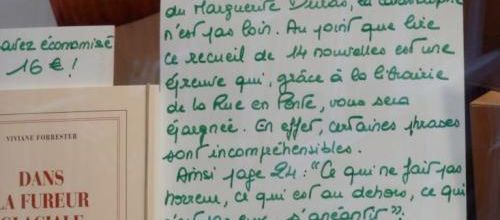 avez économisé
16 €!
VIVIANE FORRESTER
DANS
LA FUREUR
GLACIALE
du Marguerite Duras, la catastrophe
n'est pas loin. Au point que lire
ce recueil de 14 nouvelles est une
épreuve qui, grâce à la librairie
de la Rue en Pente, vous sera
épargnée. En effet, certaines phrases
sont incompréhensibles.
Ainsi page 24: "Ce qui ne fait pas
horreur, ce qui est au dehors, ce qui
s'anéantit"